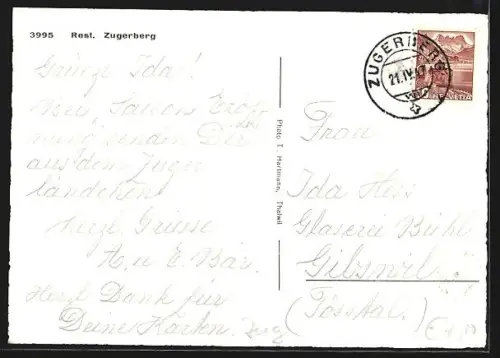 3995 Rest. Zugerberg
Ida!
Bei Saison Eröff
nung senden Dir
aus dem Zuger
ländchen
herzl. Grüsse
A. u E. Bär.
Herzl Dank für
Deine Karten.
Photo T. Hartmann, Thalwil
ZUGERBERG
21.IV.
HELVETIA
Frau
Ida Hess
Glaserei
(Tösstal.)